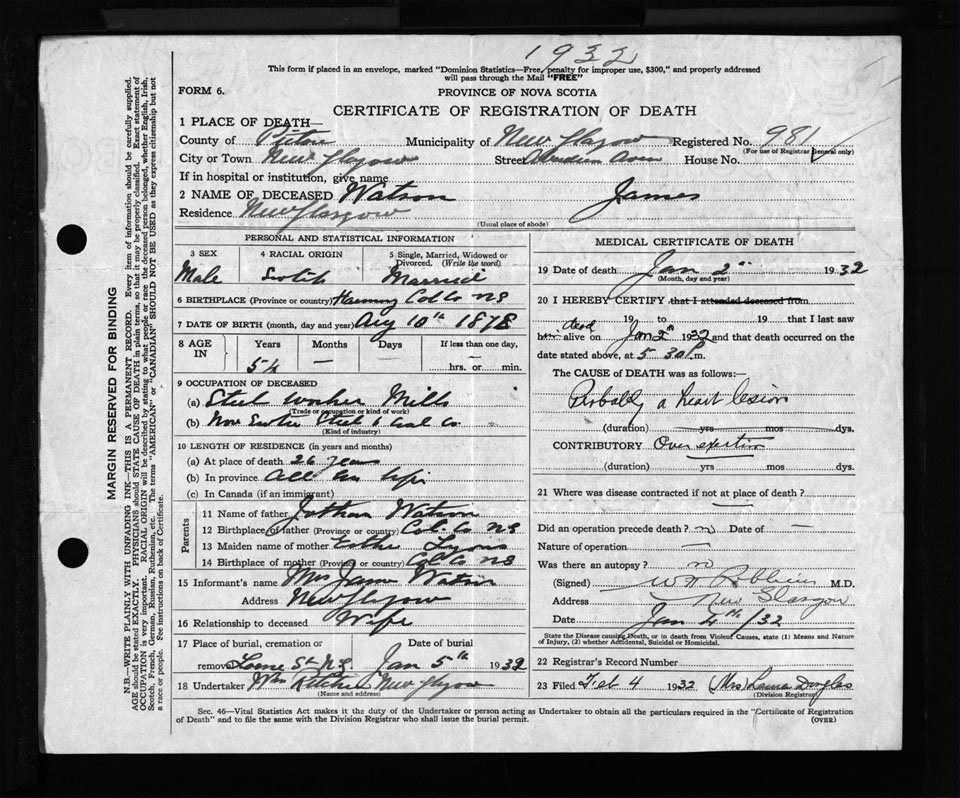 1932
This form if placed in an envelope, marked "Dominion Statistics—Free, penalty for improper use, $300," and properly addressed
will pass through the Mail "FREE"
FORM 6.
PROVINCE OF NOVA SCOTIA
CERTIFICATE OF REGISTRATION OF DEATH
1 PLACE OF DEATH—
County of Pictou Municipality of New Glasgow Registered No. 981
(For use of Registrar General only)
City or Town New Glasgow Street House No.
If in hospital or institution, give name
2 NAME OF DECEASED Watson James
Residence New Glasgow
(Usual place of abode)
MARGIN RESERVED FOR BINDING
N.B.—WRITE PLAINLY WITH UNFADING INK—THIS IS A PERMANENT RECORD. Every item of information should be carefully supplied.
AGE should be stated EXACTLY. PHYSICIANS should STATE CAUSE OF DEATH in plain terms, so that it may be properly classified. Exact statement of
OCCUPATION is very important. RACIAL ORIGIN will be described by stating to what people or race the deceased person belonged, whether English, Irish,
Scotch, French, German, Russian, Ruthenian, etc. The terms "AMERICAN" or "CANADIAN" SHOULD NOT BE USED as they express citizenship but not
a race or people. See instructions on back of Certificate.
PERSONAL AND STATISTICAL INFORMATION
3 SEX
Male
4 RACIAL ORIGIN
Scotch
5 Single, Married, Widowed or
Divorced. (Write the word)
Married
6 BIRTHPLACE (Province or country) Col Co NS
7 DATE OF BIRTH (month, day and year) Aug 10th 1878
8 AGE
IN
Years Months Days If less than one day,
54 — — hrs. or min.
9 OCCUPATION OF DECEASED
(a) Steel Worker Mills
(Trade or occupation or kind of work)
(b) Nova Scotia Steel & Coal Co
(Kind of industry)
10 LENGTH OF RESIDENCE (in years and months)
(a) At place of death 26 years
(b) In province All his life
(c) In Canada (if an immigrant)
Parents
11 Name of father Jothan Watson
12 Birthplace of father (Province or country) Col. Co NS
13 Maiden name of mother Esther Lyons
14 Birthplace of mother (Province or country) Col Co NS
15 Informant's name Mrs James Watson
Address New Glasgow
16 Relationship to deceased Wife
17 Place of burial, cremation or Date of burial
removal Lorne St N.G. Jan 5th 1932
18 Undertaker New Glasgow
(Name and address)
MEDICAL CERTIFICATE OF DEATH
19 Date of death Jan 2" 1932
(Month, day and year)
20 I HEREBY CERTIFY that I attended deceased from
19 to 19 that I last saw
him dead alive on Jan 2nd 1932 and that death occurred on the
date stated above, at 5 30 a.m.
The CAUSE of DEATH was as follows:—
Probably a heart lesion
(duration) yrs mos dys.
CONTRIBUTORY Over exertion
(duration) yrs mos dys.
21 Where was disease contracted if not at place of death? —
Did an operation precede death? no Date of —
Nature of operation —
Was there an autopsy? no
(Signed) M.D.
Address New Glasgow
Date Jan 4th /32
State the Disease causing Death, or in death from Violent Causes, state (1) Means and Nature
of Injury, (2) whether Accidental, Suicidal or Homicidal.
22 Registrar's Record Number
23 Filed Feb 4 1932 (Mrs) Douglas
(Division Registrar)
Sec. 46—Vital Statistics Act makes it the duty of the Undertaker or person acting as Undertaker to obtain all the particulars required in the "Certificate of Registration
of Death" and to file the same with the Division Registrar who shall issue the burial permit. (OVER)